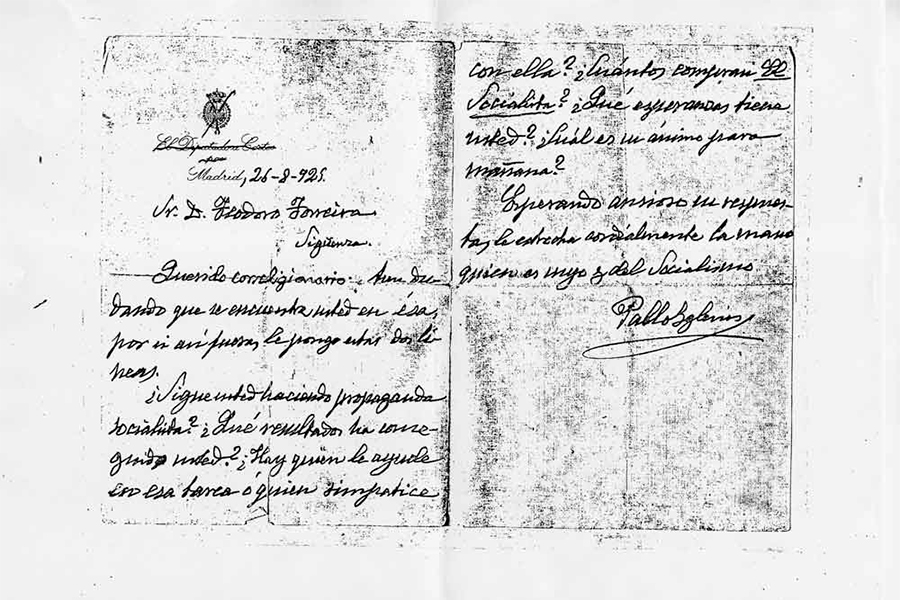 El Diputado a Cortes
por
Madrid, 26-8-925.
Sr. D. Teodoro Torreira
Sigüenza.
Querido correligionario: Aun du-
dando que se encuentre usted en ésa,
por si así fuera, le pongo estas dos lí-
neas.
¿Sigue usted haciendo propaganda
socialista? ¿Qué resultados ha conse-
guido usted? ¿Hay quien le ayude
en esa tarea o quien simpatice
con ella? ¿Cuántos compran El
Socialista? ¿Qué esperanzas tiene
usted? ¿Cuál es su ánimo para
mañana?
Esperando ansioso su respues-
ta, le estrecha cordialmente la mano
quien es suyo y del Socialismo
Pablo Iglesias